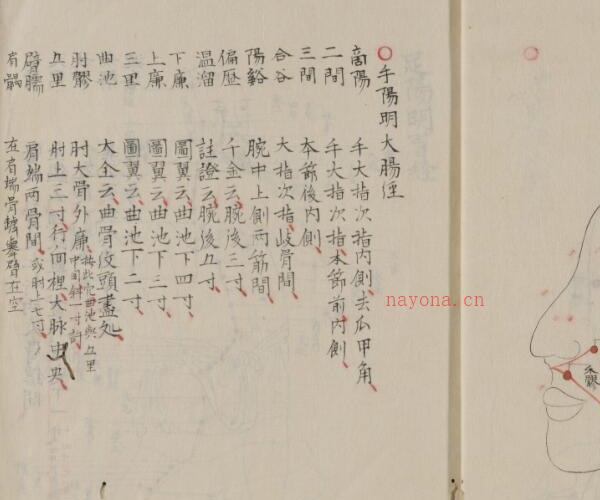 ○手陽明大腸經
商陽 手大指次指內側去爪甲角
二間 手大指次指本節前內側
三間 本節後內側
合谷 大指次指歧骨間
陽谿 腕中上側兩筋間
偏歷 千金云腕後三寸
温溜 註證云腕後五寸
下廉 圖翼云曲池下四寸
上廉 圖翼云曲池下三寸
三里 圖翼云曲池下二寸
曲池 大全云曲骨紋頭盡处
肘髎 肘大骨外廉 按此穴曲池與五里中間斜一寸許
五里 肘上三寸行向裡大脉中央
臂臑 肩端兩骨間 或肘上七寸
肩髃 在肩端骨罅舉臂在空
禾髎
nayona.cn